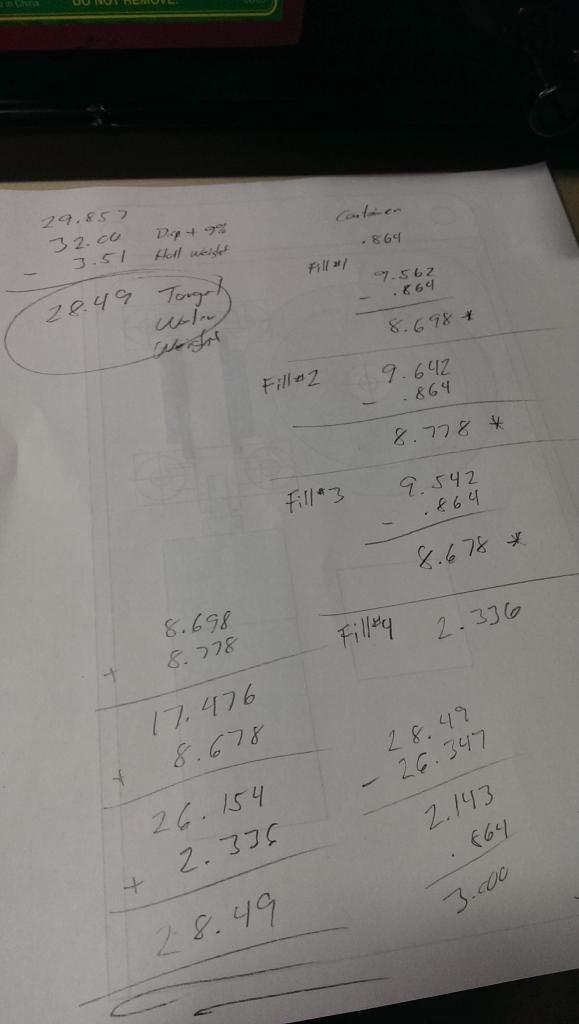 in China
DO NOT REMOVE.
29.857
32.00 Disp + 9%
- 3.51 Hull weight
28.49 Target
Water
Weight
Container
.864
Fill #1 9.562
- .864
8.698 *
Fill #2 9.642
- .864
8.778 *
Fill #3 9.542
- .864
8.678 *
Fill #4 2.336
8.698
+ 8.778
17.476
+ 8.678
26.154
+ 2.336
28.49
28.49
- 26.347
2.143
.864
3.00